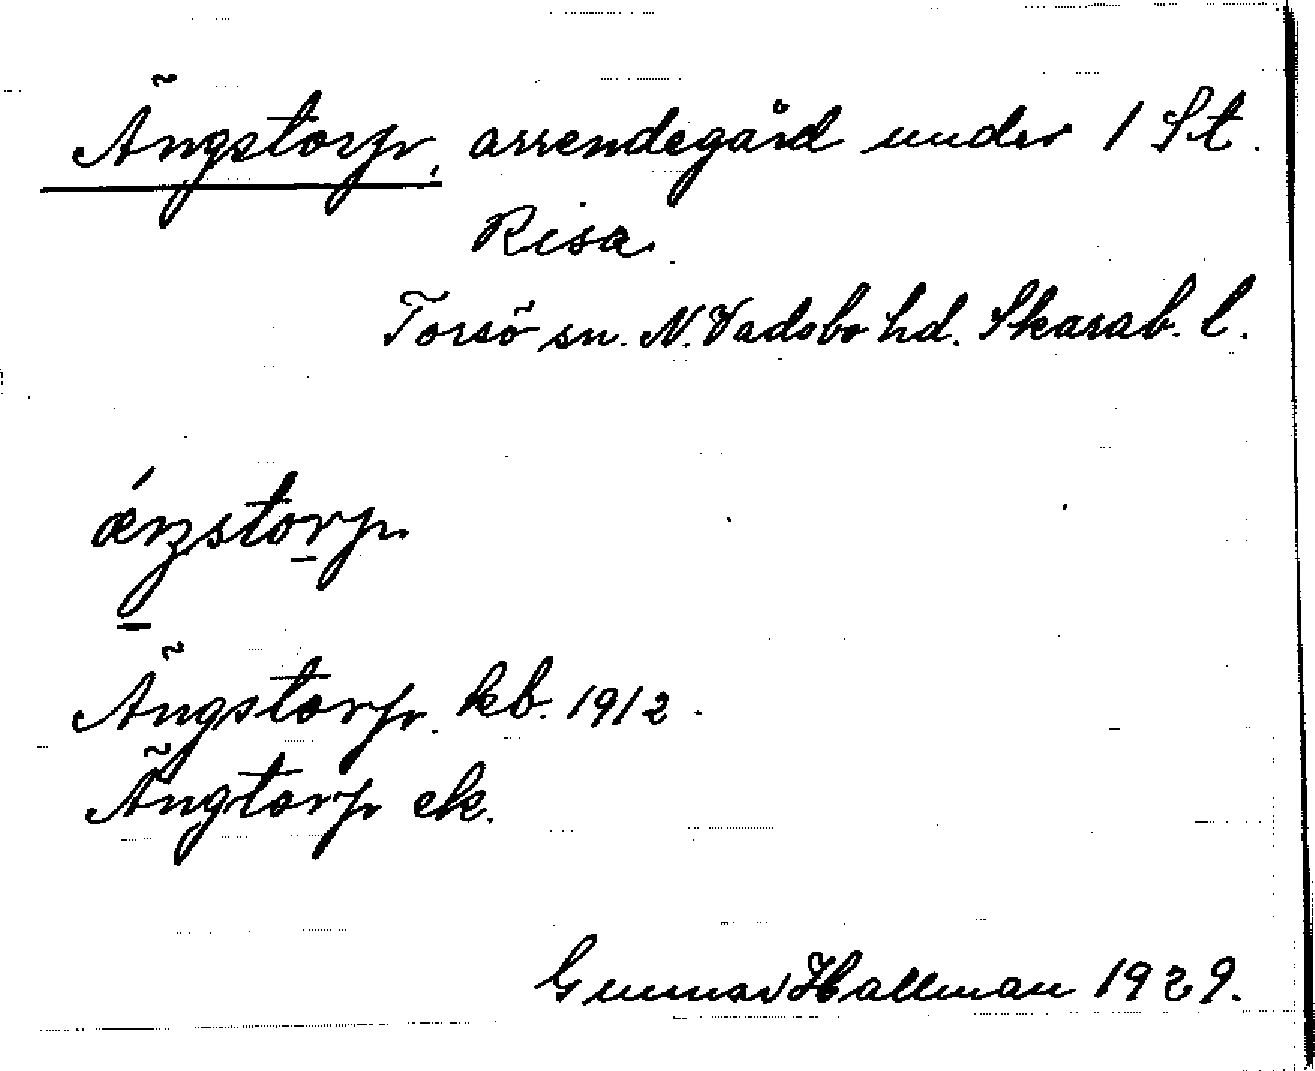 Ängstorp, arrendegård under 1 St.
Risa.
Torsö sn. N. Vadsbo hd. Skarab. l.
ǽŋstorp
Ängstorp. kb. 1912.
Ängtorp ek.
Gunnar Hallman 1929.